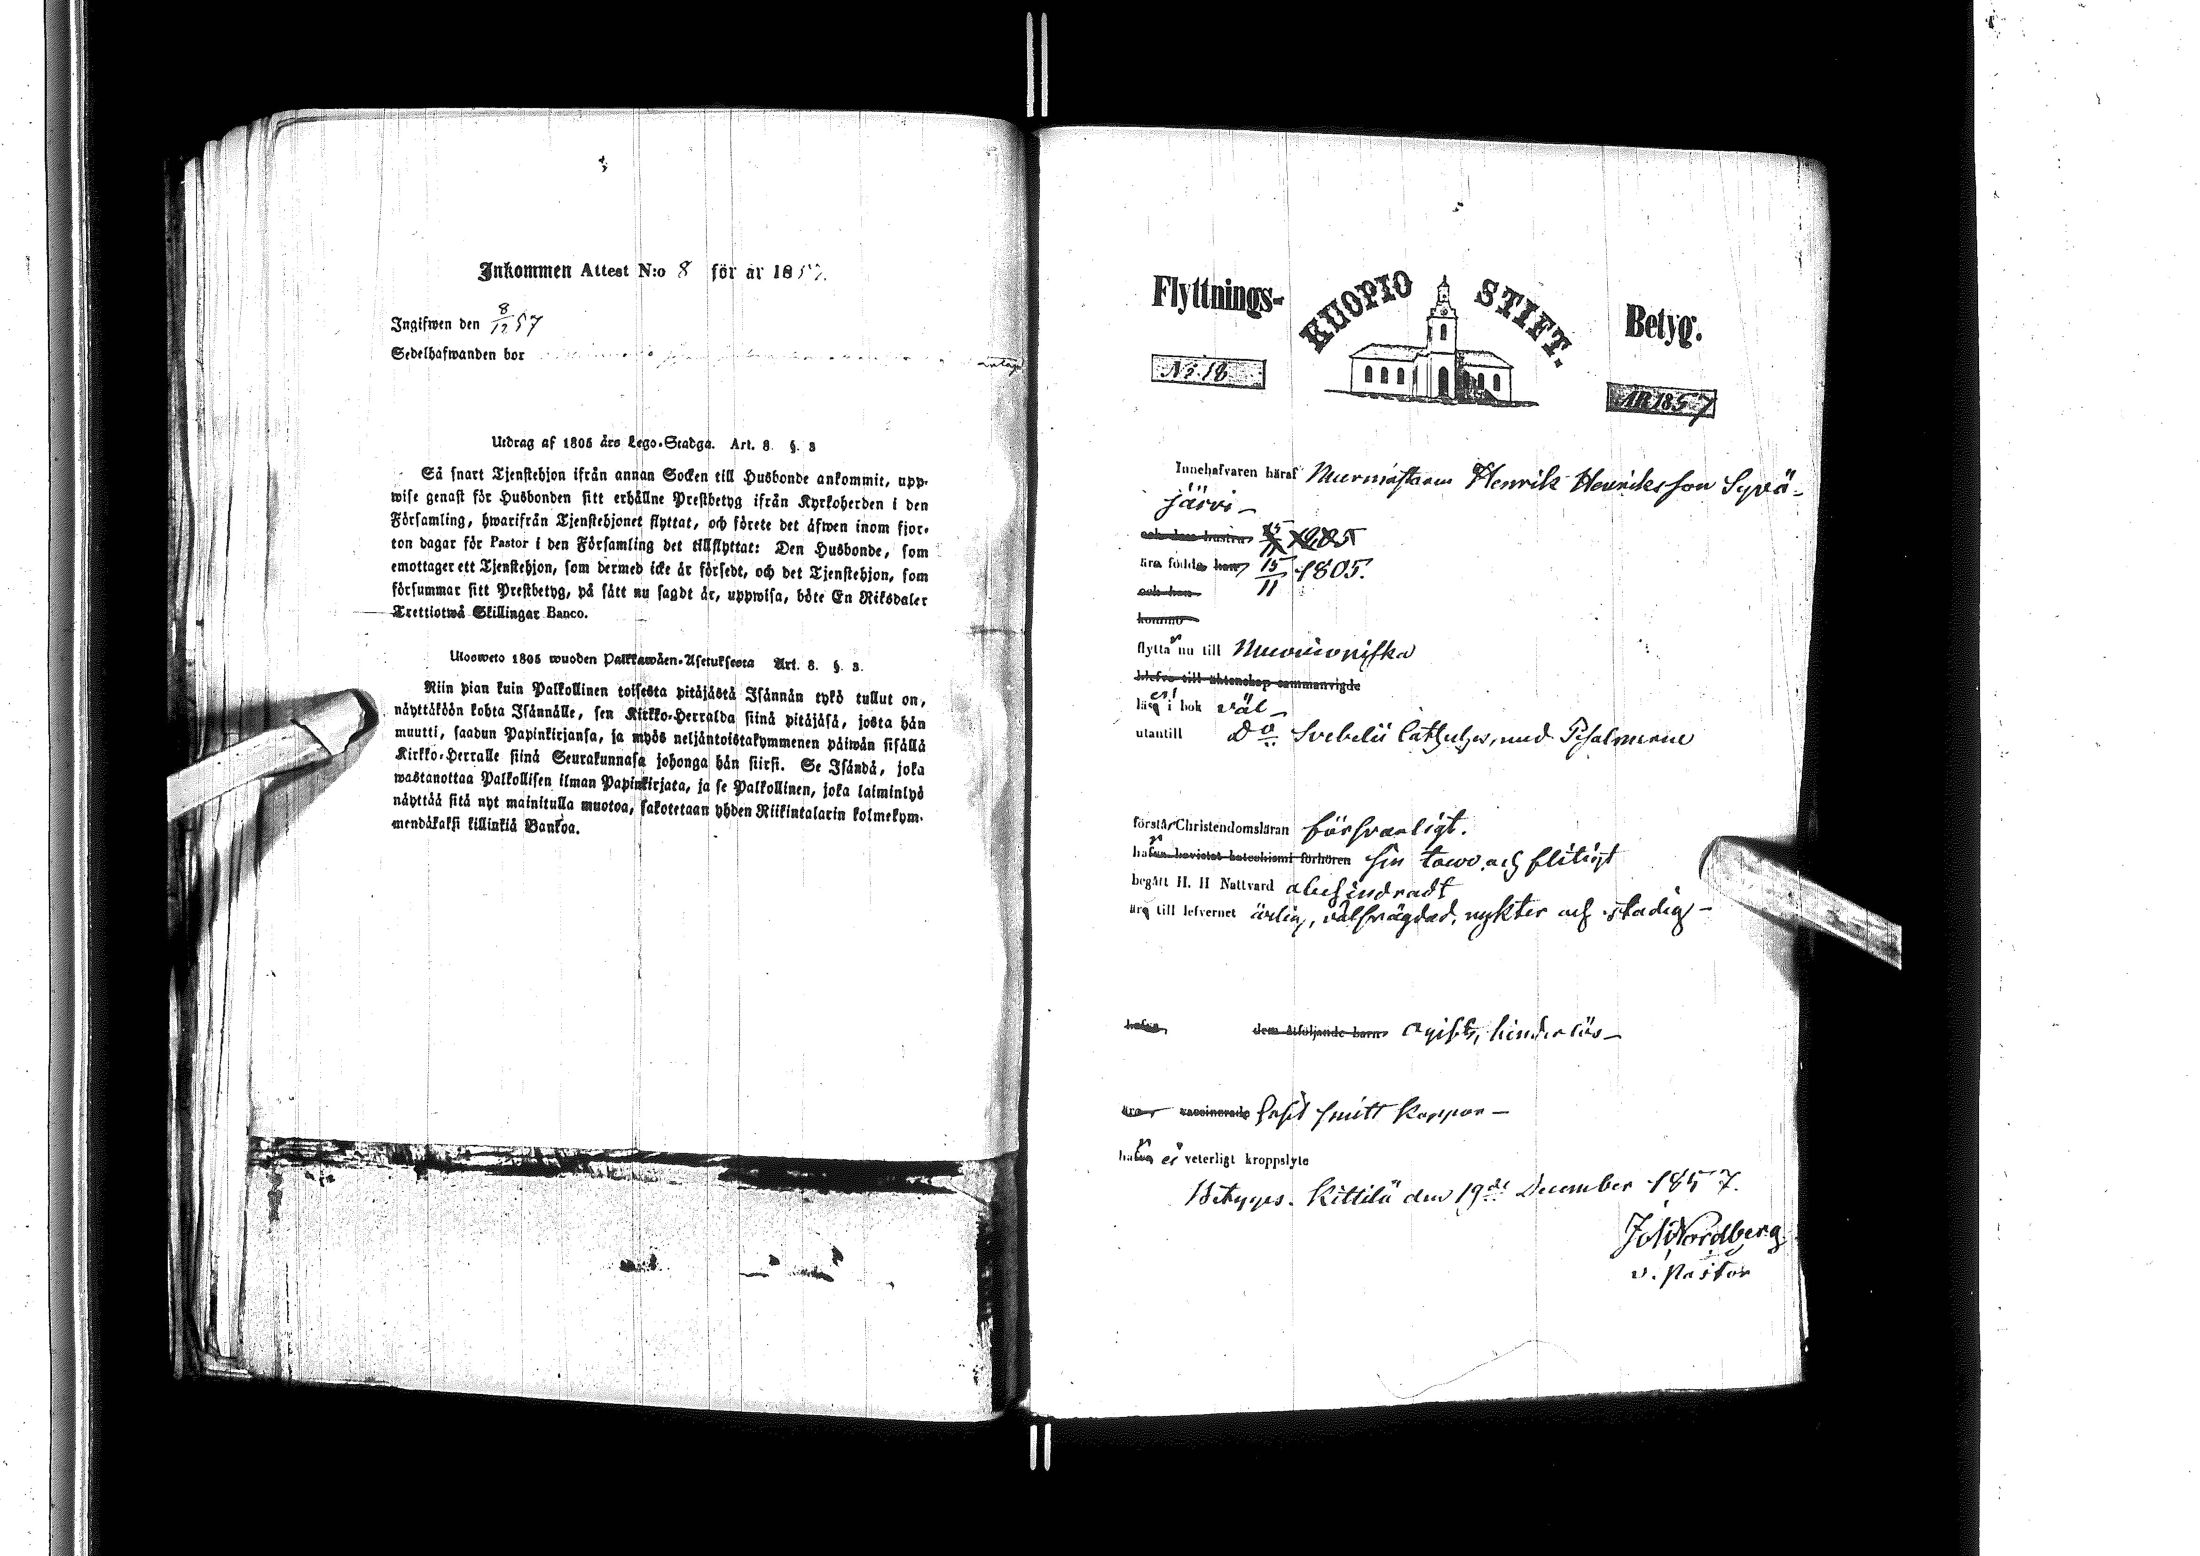 Inkommen Attest N:o 8 för år 1857.
Ingifwen den 8/12 57
Sedelhafwanden bor
Utdrag af 1805 års Lego-Stadga. Art. 8. §. 3
Så snart Tjenstehjon ifrån annan Socken till Husbonde ankommit, upp-
wise genast för Husbonden sitt erhållne Prestbetyg ifrån Kyrkoherden i den
Församling, hwarifrån Tjenstehjonet flyttat, och förete det äfwen inom fjor-
ton dagar för Pastor i den Församling det tillflyttat: Den Husbonde, som
emottager ett Tjenstehjon, som dermed icke är försedt, och det Tjenstehjon, som
försummar sitt Prestbetyg, på sätt nu sagdt är, uppwisa, böte En Riksdaler
Trettiotwå Skillingar Banco.
Utosweto 1805 wuoden Palkkawäen-Asetuksesta Art. 8. §. 3.
Niin pian kuin Palkollinen toisesta pitäjästä Isännän tykö tullut on,
näyttäköön kohta Isännälle, sen Kirkko-Herralda siinä pitäjäsä, josta hän
muutti, saadun Papinkirjansa, ja myös neljäntoistakymmenen päiwän sisällä
Kirkko-Herralle siinä Seurakunnasa johonga hän siirsi. Se Isändä, joka
wastanottaa Palkollisen ilman Papinkirjata, ja se Palkollinen, joka laiminlyö
näyttää sitä nyt mainitulla muotoa, sakotetaan yhden Riikintalarin kolmekym-
mendäkaksi killinkiä Bankoa.
Flyttnings- KUOPIO STIFT. Betyg.
No 18
ÅR 1857
Innehafvaren häraf Murmästaren Henrik Henriksson Syvä-
järvi –
och dess hustru 15/11 1805
äro födde han 15/11 1805.
och hon
komma
flyttar nu till Muonioniska
blefvo till äktenskap sammanvigde
läser i bok väl –
utantill Do Svebelii Catheches, med Psalmerne
förstår Christendomsläran försvarligt.
hafva bevistat katechismi förhören sin tour och flitigt
begått H. H Nattvard obehindradt
äro till lefvernet ärlig, välfrägdad, nykter och stadig –
hafva dem åtföljande barn ogift, hinderlös –
äro vaccinerade haft smitt koppor –
har ej veterligt kroppslyte
Betygas. Kittilä den 19de December 1857.
Nordberg
v. pastor